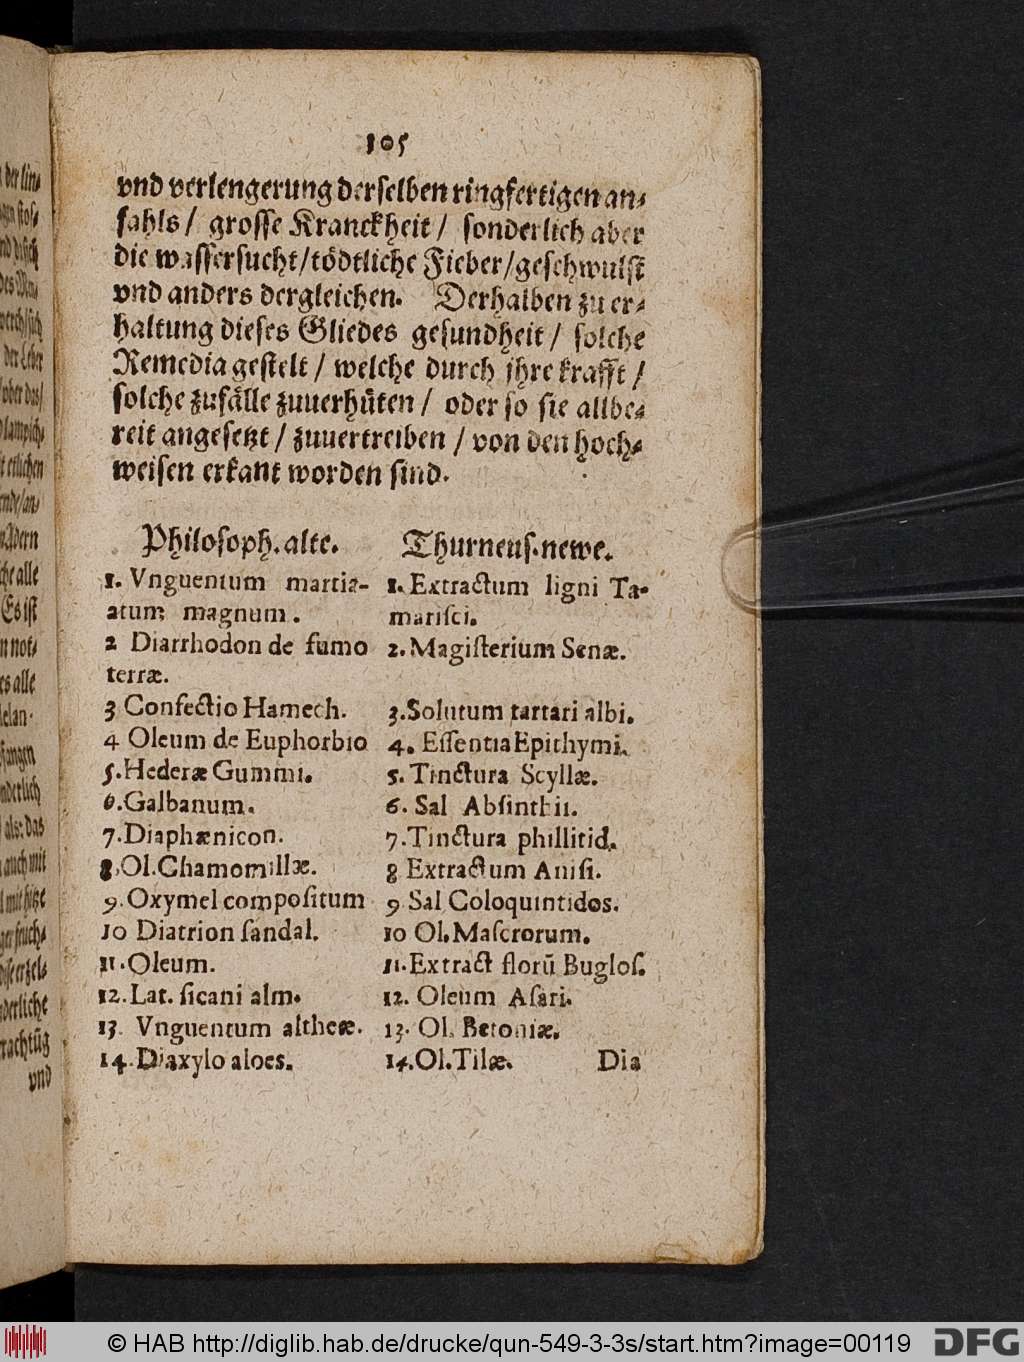 105
vnd verlengerung derselben ringfertigen an-
fahls / grosse Kranckheit / sonderlich aber
die wassersucht / tödtliche Fieber / geschwulst
vnd anders dergleichen. Derhalben zu er-
haltung dieses Gliedes gesundheit / solche
Remedia gestelt / welche durch jhre krafft /
solche zufälle zuuerhüten / oder so sie allbe-
reit angesetzt / zuuertreiben / von den hoch-
weisen erkant worden sind.
Philosoph. alte.
1. Vnguentum martia-
atum magnum.
2 Diarrhodon de fumo
terræ.
3 Confectio Hamech.
4 Oleum de Euphorbio
5. Hederæ Gummi.
6. Galbanum.
7. Diaphænicon.
8. Ol. Chamomillæ.
9. Oxymel compositum
10 Diatrion sandal.
11. Oleum.
12. Lat. sicani alm.
13. Vnguentum altheæ.
14. Diaxylo aloes.
Thurneus. newe.
1. Extractum ligni Ta-
marisci.
2. Magisterium Senæ.
3. Solutum tartari albi.
4. Essentia Epithymi.
5. Tinctura Scyllæ.
6. Sal Absinthii.
7. Tinctura phillitid.
8 Extractum Anisi.
9 Sal Coloquintidos.
10 Ol. Mascrorum.
11. Extract florū Buglos.
12. Oleum Asari.
13. Ol. Betoniæ.
14. Ol. Tilæ.
Dia
der lin-
des Men-
der Leber
oder das /
etlichen
Adern
che alle
Es ist
n not-
es alle
auch mit
vnd
© HAB http://diglib.hab.de/drucke/qun-549-3-3s/start.htm?image=00119
DFG